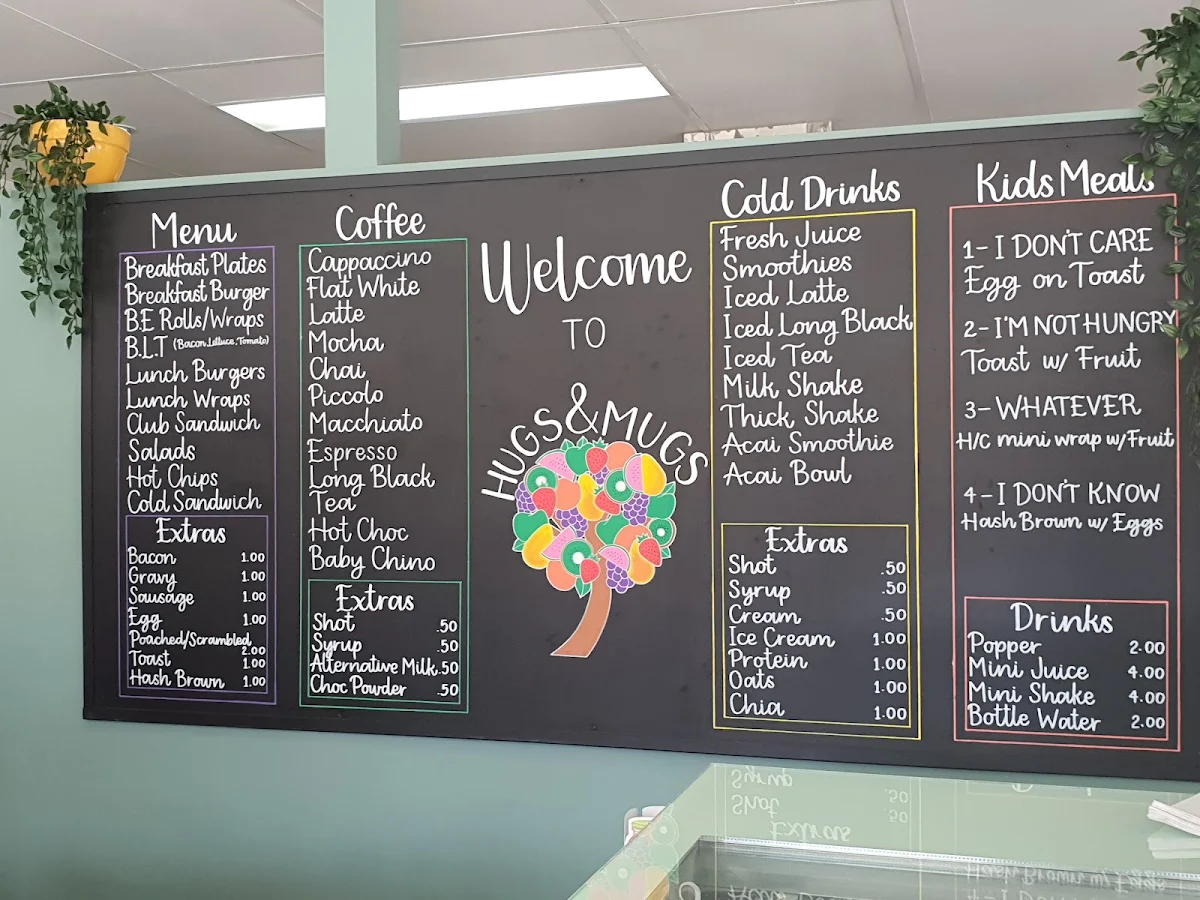 Menu
Breakfast Plates
Breakfast Burger
B.E Rolls/Wraps
B.L.T (Bacon, Lettuce, Tomato)
Lunch Burgers
Lunch Wraps
Club Sandwich
Salads
Hot Chips
Cold Sandwich
Extras
Bacon 1.00
Gravy 1.00
Sausage 1.00
Egg 1.00
Poached/Scrambled 2.00
Toast 1.00
Hash Brown 1.00
Coffee
Cappaccino
Flat White
Latte
Mocha
Chai
Piccolo
Macchiato
Espresso
Long Black
Tea
Hot Choc
Baby Chino
Extras
Shot .50
Syrup .50
Alternative Milk .50
Choc Powder .50
Welcome
TO
HUGS & MUGS
Cold Drinks
Fresh Juice
Smoothies
Iced Latte
Iced Long Black
Iced Tea
Milk Shake
Thick Shake
Acai Smoothie
Acai Bowl
Extras
Shot .50
Syrup .50
Cream .50
Ice Cream 1.00
Protein 1.00
Oats 1.00
Chia 1.00
Kids Meals
1- I DON'T CARE
Egg on Toast
2- I'M NOT HUNGRY
Toast w/ Fruit
3- WHATEVER
H/C mini wrap w/Fruit
4- I DON'T KNOW
Hash Brown w/ Eggs
Drinks
Popper 2.00
Mini Juice 4.00
Mini Shake 4.00
Bottle Water 2.00